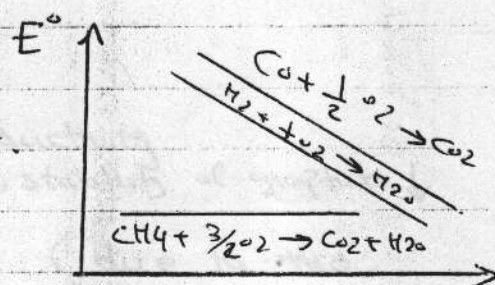 E°
Co + 1/2 O2 → Co2
H2 + 1/2 O2 → H2O
CH4 + 3/2 O2 → Co2 + H2O